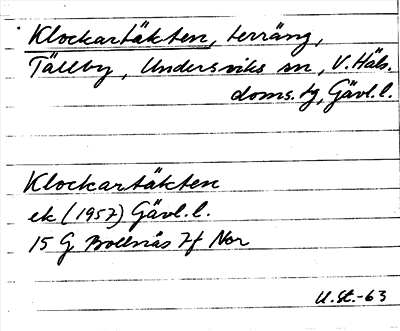 Klockartäkten, terräng,
Tällby, Undersviks sn, V. Häls.
doms. tg, Gävl. l.
Klockartäkten
ek (1957) Gävl. l.
15 G Bollnäs 7f Nor
U.St.-63